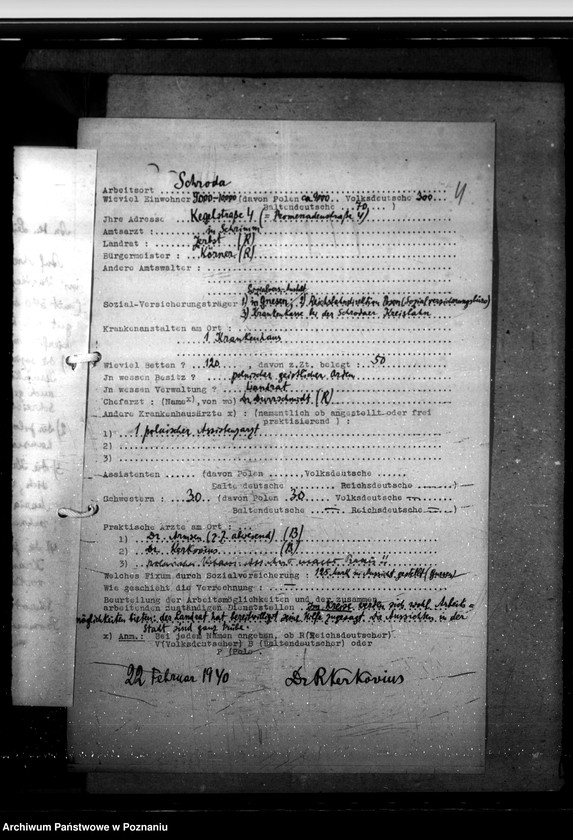 4
Arbeitsort Schroda
Wieviel Einwohner 9000-10000 (davon Polen ca. 9000 .. Volksdeutsche 300
Baltendeutsche .. 70 .. )
Jhre Adresse .. Kegelstraße 4. (= Promenadenstraße 4)
Amtsarzt : in Schrimm
Landrat : Zerbst (R)
Bürgermeister : Körner (R)
Andere Amtswalter :
Sozial-Versicherungsträger 1) in Gnesen, 2) Reichsbahndirektion Posen (Sozialversicherungsbüro)
3) Krankenkasse bei der Schrodaer Kreisbahn
Krankenanstalten am Ort :
1 Krankenhaus
Wieviel Betten ? 120 , davon z.Zt. belegt : 50
Jn wessen Besitz ? polnischer geistlicher Orden
Jn wessen Verwaltung ? Landrat
Chefarzt : (Name x), von wo) Dr. (R)
Andere Krankenhausärzte x) : (namentlich ob angestellt oder frei
praktisierend ) :
1) 1 polnischer Assistenzarzt
2)
3)
Assistenten ...... (davon Polen ...... Volksdeutsche ......
Baltendeutsche ...... Reichsdeutsche ......)
Schwestern : 30. (davon Polen 30 Volksdeutsche —
Baltendeutsche — Reichsdeutsche —)
Praktische Ärzte am Ort :
1) Dr. (z.Z. abwesend) (B)
2) Dr. Kerkovius (B)
3)
Welches Fixum durch Sozialversicherung : 125 Mark in Aussicht gestellt (Gnesen)
Wie geschieht die Verrechnung : —
Beurteilung der Arbeitsmöglichkeiten und der zusammen
arbeitenden zuständigen Dienststellen Im Kreise sich wohl Arbeits=
möglichkeiten bieten. Der Landrat hat bereitwilligst seine Hilfe zugesagt. Die Aussichten in der
Stadt sind ganz trübe.
x) Anm.: Bei jedem Namen angeben, ob R(Reichsdeutscher)
V(Volksdeutscher) B (Baltendeutscher) oder
P (Pole .
22 Februar 1940 Dr R Kerkovius
Archiwum Państwowe w Poznaniu